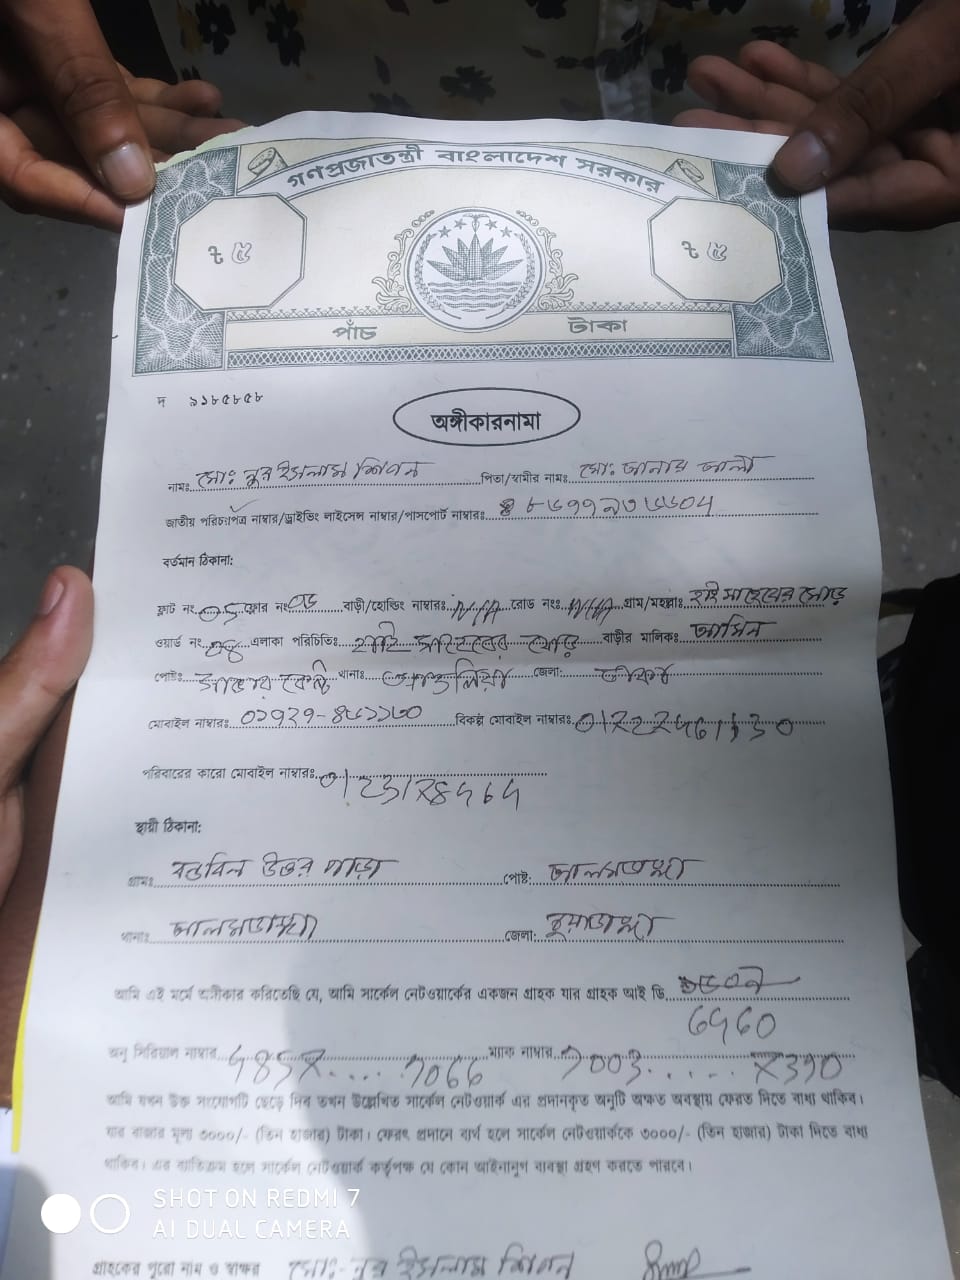 গণপ্রজাতন্ত্রী বাংলাদেশ সরকার
৳ ৫ ৳ ৫
পাঁচ টাকা
দ ৯১৮৫৮৫৮
অঙ্গীকারনামা
নামঃ মোঃ নুর ইসলাম শিপন পিতা/স্বামীর নামঃ মোঃ আনার আলী
জাতীয় পরিচয়পত্র নাম্বার/ড্রাইভিং লাইসেন্স নাম্বার/পাসপোর্ট নাম্বারঃ
বর্তমান ঠিকানা:
ফ্লাট নং ফ্লোর নং বাড়ী/হোল্ডিং নাম্বারঃ N/A রোড নংঃ N/A গ্রাম/মহল্লাঃ হাই সাহেবের মোড়
ওয়ার্ড নং এলাকা পরিচিতিঃ হাই সাহেবের মোড় বাড়ীর মালিকঃ আমিন
পোষ্টঃ সাভার কেন্ট থানাঃ আশুলিয়া জেলা: ঢাকা
মোবাইল নাম্বারঃ বিকল্প মোবাইল নাম্বারঃ
পরিবারের কারো মোবাইল নাম্বারঃ
স্থায়ী ঠিকানা:
গ্রামঃ উত্তর পাড়া পোষ্ট: আলমডাঙ্গা
থানাঃ আলমডাঙ্গা জেলা: চুয়াডাঙ্গা
আমি এই মর্মে অঙ্গীকার করিতেছি যে, আমি সার্কেল নেটওয়ার্কের একজন গ্রাহক যার গ্রাহক আই ডি
অনু সিরিয়াল নাম্বার ম্যাক নাম্বার
আমি যখন উক্ত সংযোগটি ছেড়ে দিব তখন উল্লেখিত সার্কেল নেটওয়ার্ক এর প্রদানকৃত অনুটি অক্ষত অবস্থায় ফেরত দিতে বাধ্য থাকিব।
যার বাজার মূল্য ৩০০০/- (তিন হাজার) টাকা। ফেরৎ প্রদানে ব্যর্থ হলে সার্কেল নেটওয়ার্ককে ৩০০০/- (তিন হাজার) টাকা দিতে বাধ্য
থাকিব। এর ব্যতিক্রম হলে সার্কেল নেটওয়ার্ক কর্তৃপক্ষ যে কোন আইনানুগ ব্যবস্থা গ্রহণ করতে পারবে।
গ্রাহকের পুরো নাম ও স্বাক্ষর মোঃ- নুর ইসলাম শিপন
SHOT ON REDMI 7
AI DUAL CAMERA